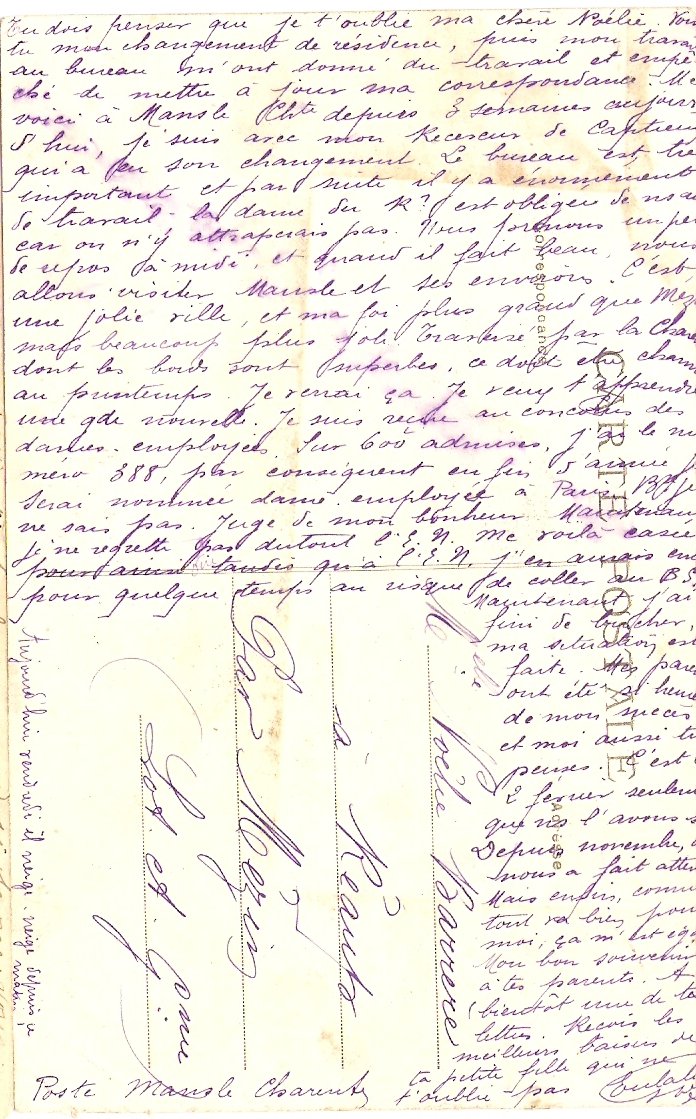 Tu dois penser que je t'oublie ma chère Noélie. Vois
tu mon changement de résidence, puis mon travail
au bureau m'ont donné du travail et empê
ché de mettre à jour ma correspondance. Me
voici à Mansle Chte depuis 3 semaines aujour
d'hui, je suis avec mon Receveur de Captieux
qui a eu son changement. Le bureau est très
important et par suite il y a énormément
de travail. la dame du R? est obligée de
car on n'y attraperais pas. Nous prenons un peu
de repos à midi, et quand il fait beau, nous
allons visiter Mansle et ses environs. C'est
une jolie ville, et ma foi plus grand que
mais beaucoup plus joli. Traversé par la
dont les bords sont superbes, ce doit être
au printemps. Je verrai ça Je veux t'apprendre
une gde nouvelle. Je suis reçue au concours des
dames-employées. Sur 600 admises, j'ai le nu
méro 388, par conséquent en fin d'année je
serai nommée dame employée à Paris je
ne sais pas. Juge de mon bonheur Maintenant
je ne regrette pas dutout l'E.N. Me voilà casée
pour ainsi tandis qu'à l'E.N. j'en aurais
pour quelque temps au risque de coller au B.S.
Maintenant j'ai
fini de bûcher,
ma situation est
faite. Mes
ont été si
de mon succès
et moi aussi tu
penses. C'est
2 février
que ns l'avons
Depuis novembre,
nous a fait
Mais enfin,
tout va bien pour
moi, ça m'est
Mon bon souvenir
à tes parents. A
bientôt une de tes
lettres. Reçois les
meilleurs baisers de
ta petite fille qui ne
t'oublie pas
CARTE POSTALE
Correspondance
Adresse
Melle Noélie Barrère
à Réaup
Par Mézin
Lot et Gne
Aujourd'hui vendredi il neige. neige depuis ce
matin,
Poste Mansle Charente